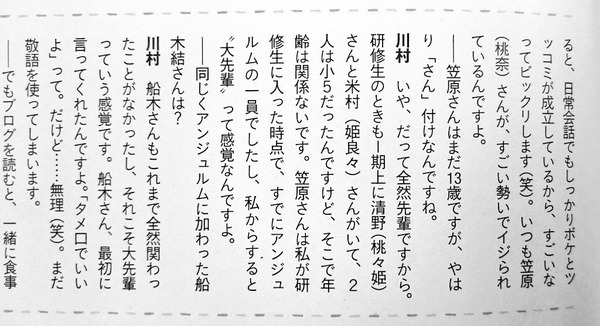 ると、日常会話でもしっかりボケとツ
ッコミが成立しているから、すごいな
ってビックリします(笑)。いつも笠原
(桃奈)さんが、すごい勢いでイジられ
ているんですよ。
――笠原さんはまだ13歳ですが、やは
り「さん」付けなんですね。
川村 いや、だって全然先輩ですから。
研修生のときも一期上に清野(桃々姫)
さんと米村(姫良々)さんがいて、2
人は小5だったんですけど、そこで年
齢は関係ないです。笠原さんは私が研
修生に入った時点で、すでにアンジュ
ルムの一員でしたし、私からすると
〝大先輩〟って感覚なんですよ。
――同じくアンジュルムに加わった船
木結さんは?
川村 船木さんもこれまで全然関わっ
たことがなかったし、それこそ大先輩
っていう感覚です。船木さん、最初に
言ってくれたんですよ。「タメ口でいい
よ」って。だけど……無理(笑)。まだ
敬語を使ってしまいます。
――でもブログを読むと、一緒に食事